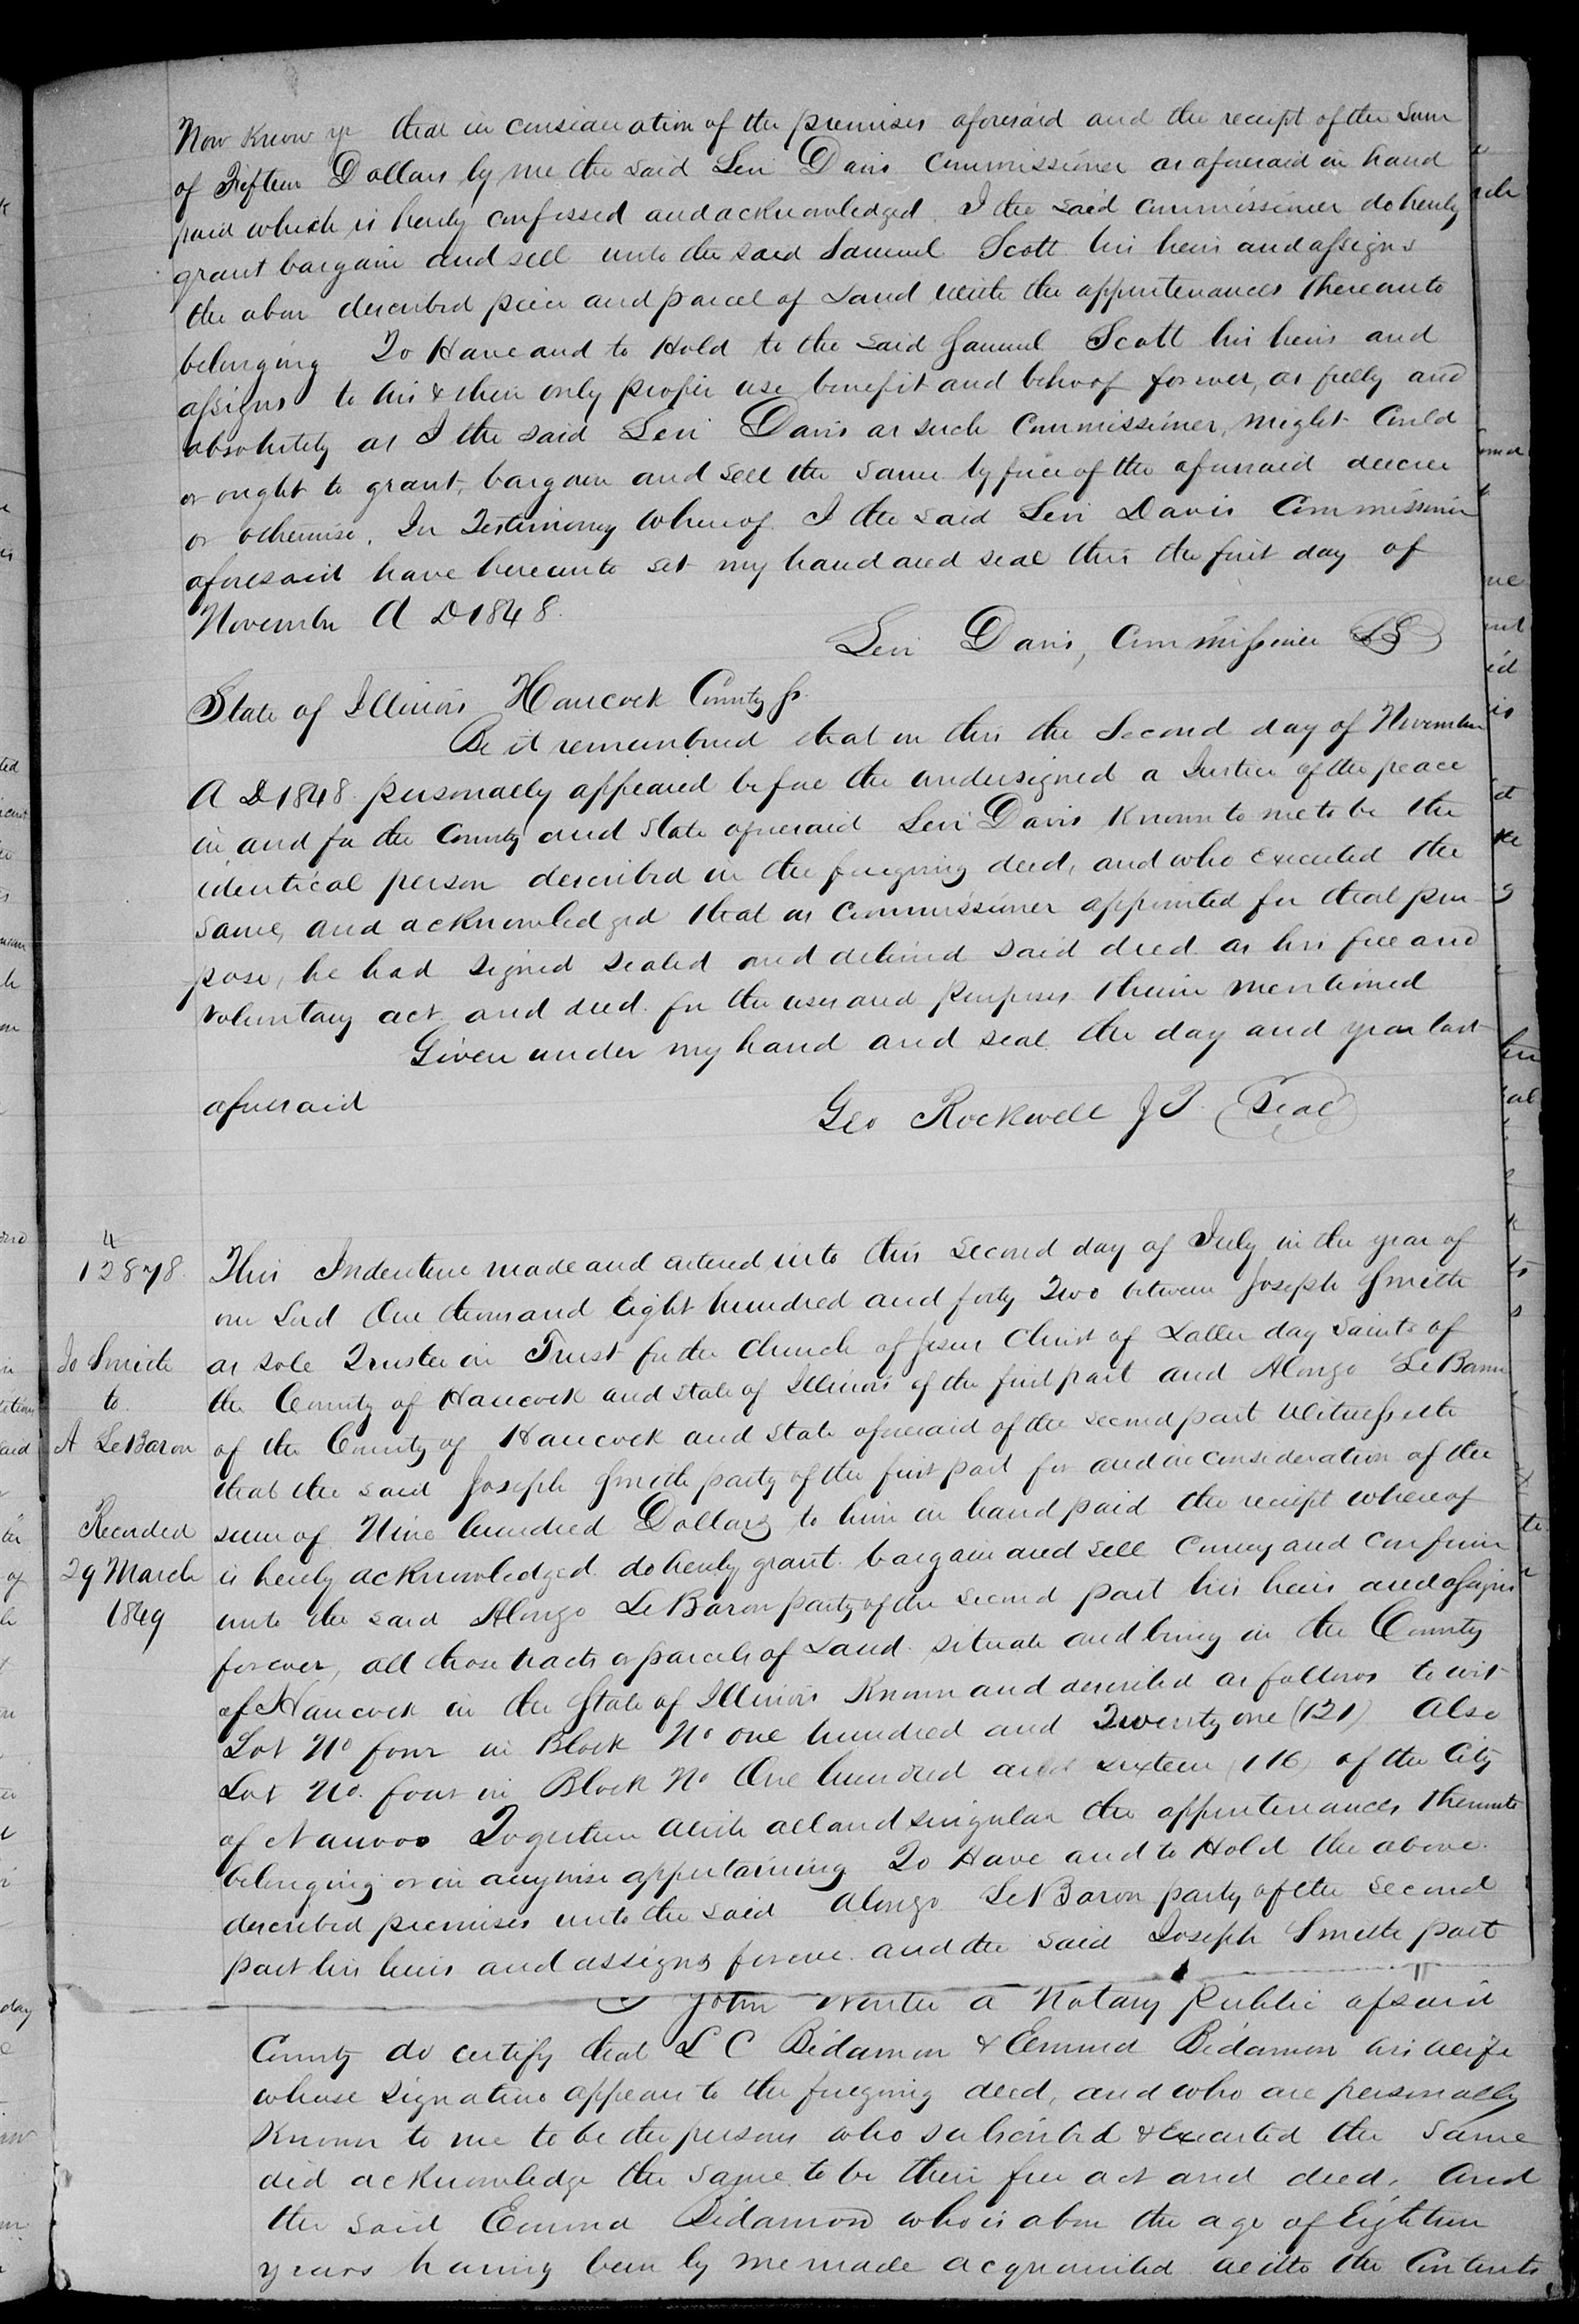 Now Know ye that in consideration of the premises aforesaid and the receipt of the Sum
of Fifteen Dollars by me the said Levi Davis Commissioner as aforesaid in hand
paid which is hereby confessed and acknowledged. I the said Commissioner do hereby
grant bargain and sell unto the said Samuel Scott his heirs and assigns
the above described piece and parcel of Land with the appurtenances thereunto
belonging To Have and to Hold to the said Samuel Scott his heirs and
assigns to his & their only proper use benefit and behoof forever, as fully and
absolutely as I the said Levi Davis as such Commissioner, might Could
or ought to grant, bargain and sell the same by force of the aforesaid decree
or otherwise. In Testimony Whereof I the said Levi Davis Commissioner
aforesaid have hereunto set my hand and seal this the first day of
November A D 1848.
Levi Davis, Commissioner LS
State of Illinois Hancock County Ss.
Be it remembered that on this the Second day of November
A D 1848 personally appeared before the undersigned a Justice of the peace
in and for the County and State aforesaid Levi Davis Known to me to be the
identical person described in the foregoing deed, and who executed the
same, and acknowledged that as Commissioner appointed for that pur-
pose, he had signed sealed and delivered said deed as his free and
voluntary act and deed for the uses and purposes therein mentioned
Given under my hand and seal the day and year last
aforesaid
Geo Rockwell J P. Seal
4
12878.
Jo Smith
to
A LeBaron
Recorded
29 March
1849
This Indenture made and entered into this second day of July in the year of
our Lord One thousand eight hundred and forty Two between Joseph Smith
as sole Trustee in Trust for the Church of Jesus Christ of Latter day Saints of
the County of Hancock and State of Illinois of the first part and Alonzo LeBaron
of the County of Hancock and State aforesaid of the second part Witnesseth
that the said Joseph Smith party of the first part for and in consideration of the
sum of Nine hundred Dollars to him in hand paid the receipt whereof
is hereby acknowledged do hereby grant bargain and sell Convey and Confirm
unto the said Alonzo LeBaron party of the second part his heirs and assigns
forever, all those tracts or parcels of Land situate and being in the County
of Hancock in the State of Illinois Known and described as follows to wit
Lot No four in Block No one hundred and Twenty one (121) Also
Lot No. four in Block No One hundred and sixteen (116) of the City
of Nauvoo Together with all and singular the appurtenances thereunto
belonging or in anywise appertaining To Have and to Hold the above
described premises unto the said Alonzo LeBaron party of the second
part his heirs and assigns forever. and the said Joseph Smith part
I John Wenter a Notary Public afsaid
County do certify that L C Bidamon & Emma Bidamon his wife
whose signatures appear to the foregoing deed, and who are personally
Known to me to be the persons who subscribed & executed the same
did acknowledge the same to be their free act and deed. And
the said Emma Bidamon who is above the age of Eighteen
years having been by me made acquainted with the Contents